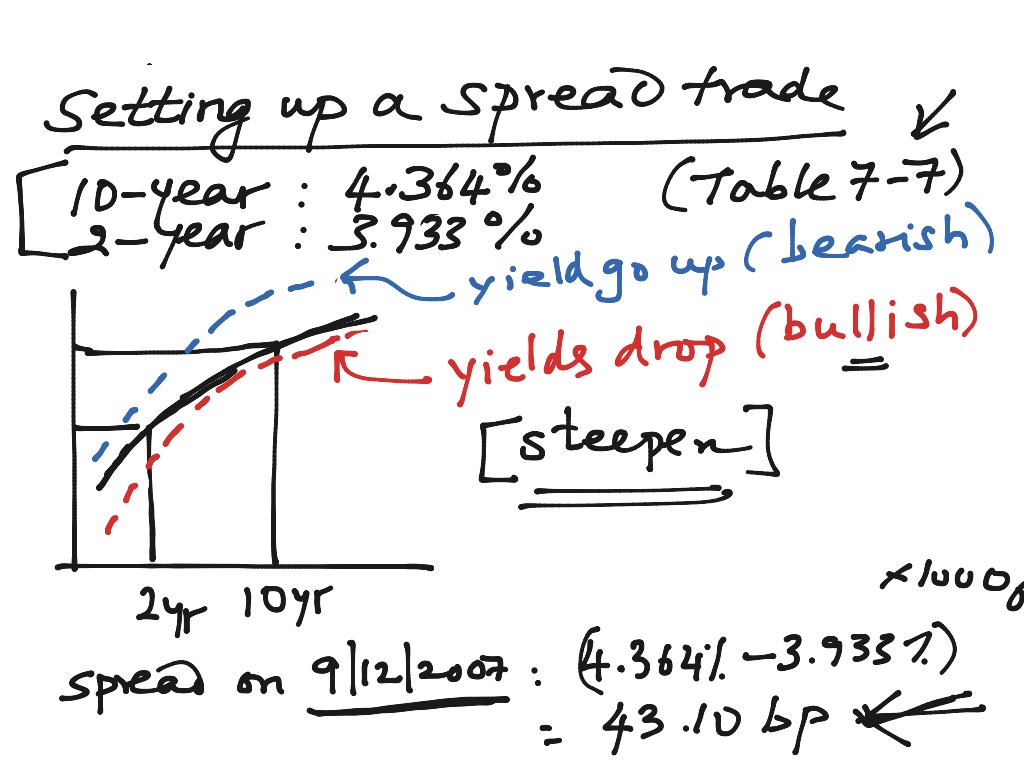 Setting up a spread trade
10-year : 4.364% (Table 7-7)
2-year : 3.933%
yield go up (bearish)
yields drop (bullish)
[steepen]
2yr 10yr
spread on 9|12|2007 : (4.364% - 3.933%)
= 43.10 bp